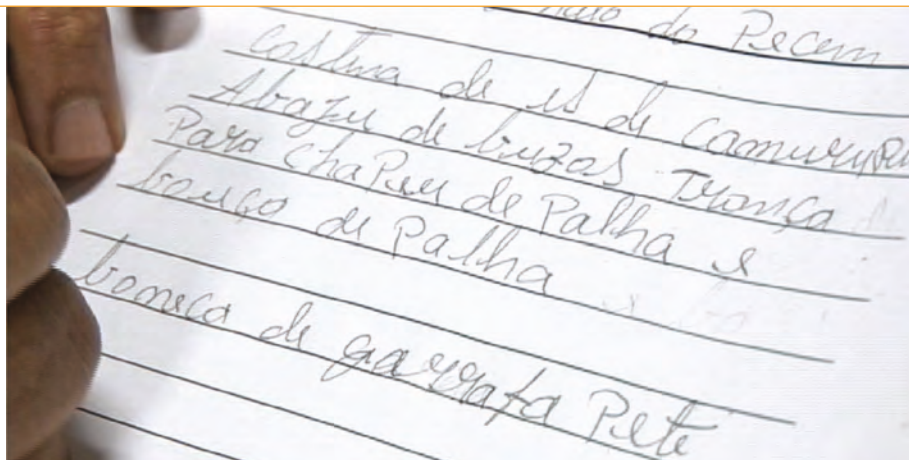 do Pecem
de is de camurupi
Abazu de buzos Trança
Para chaPeu de Palha e
de Palha
boneca de garrafa Pete